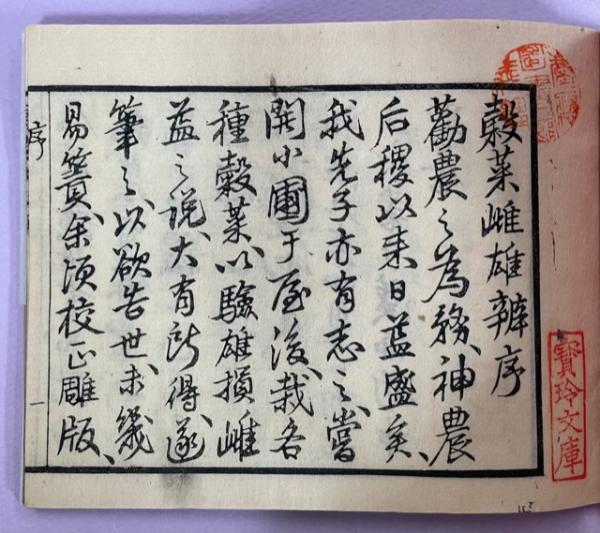 穀菜雌雄辨序
勸農之為務、神農
后稷以来日益盛矣、
我先子亦有志之、嘗
開小圃于屋後、栽各
種穀菜、以驗雄損雌
益之說、大有所得、遂
筆之、以欲告世、未幾
易簀、余頃校正雕版、
序
一
寶玲文庫